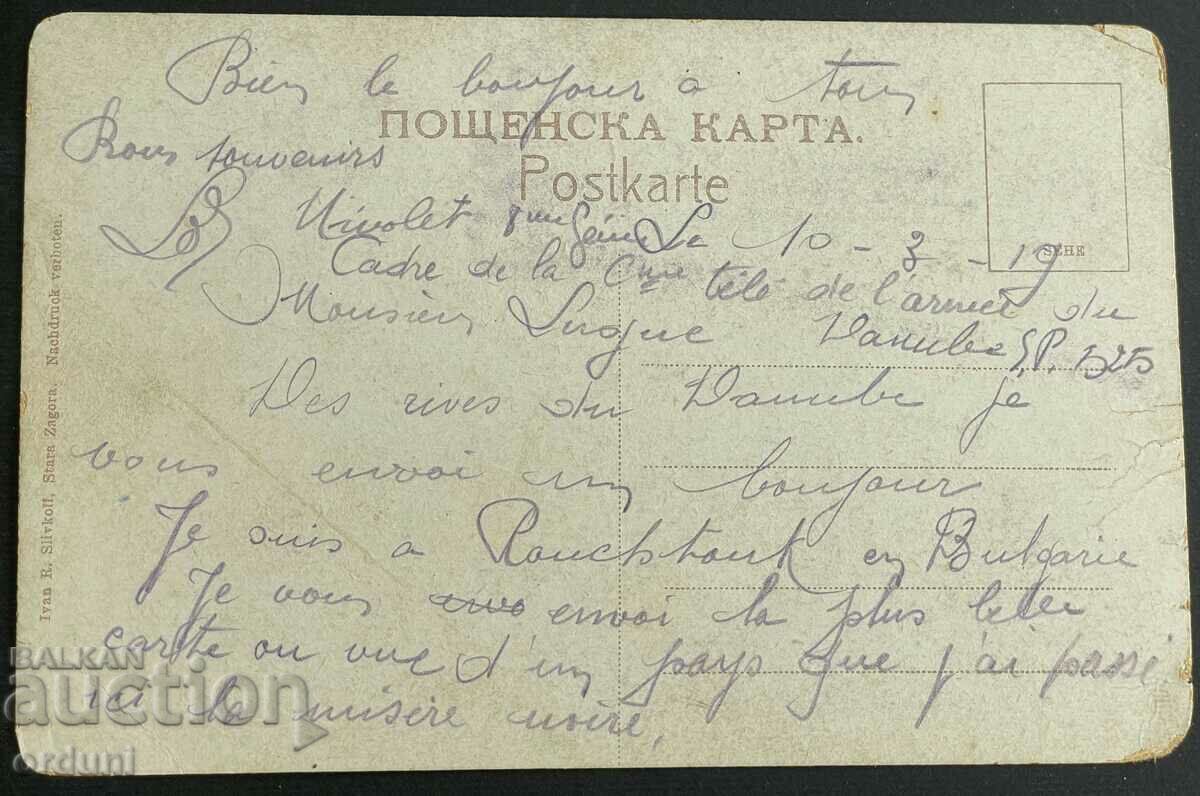 Bien le bonjour a tous
ПОЩЕНСКА КАРТА.
Bons souvenirs
Postkarte
Le 10 - 3 - 19
Cadre de la Cme télé de l'armée du
Danube S.P. 525
Monsieur
Des rives du Danube je
vous envoi un bonjour
Je suis a Rouchtouk en Bulgarie
Je vous envoi la plus belle
carte ou vue d'un pays que j'ai passé
ici la misère noire.
Ivan R. Slivkoff, Stara Zagora. Nachdruck verboten.
BALKAN
auction
orduni